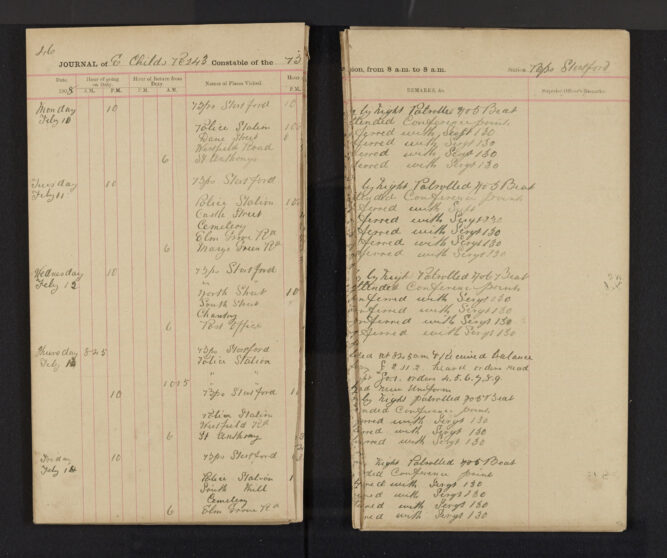 JOURNAL of E Childs PC 243 Constable of the
Date. Hour of going on Duty. Hour of Return from Duty. Names of Places Visited. Hour
1908 A.M. P.M. P.M. A.M. P.M.
Monday 10 Stortford 10
Feby 10 Police Station
Dane Street
Westfield Road
6 St Anthonys
Tuesday 10 Stortford
Feby 11 Police Station
Castle Street
Cemetery
Elm Grove Rd
6 Rd
Wednesday 10 Stortford
Feby 12 " "
North Street 10
South Street
Chantry
6 Post Office
Thursday 8-25 Stortford
Feby Police Station
" "
10 15
10 Stortford
Police Station
Westfield Rd
6 St Anthony
Friday 10 Stortford
Feby 14 Police Station
South Mill
Cemetery
6 Elm Grove Rd
ion, from 8 a.m. to 8 a.m. Station Stortford
REMARKS, &c. Superior Officer's Remarks.
by Night Patrolled No 5 Beat
tended Conference points
ferred with Sergt 130
ferred with Sergt 130
erred with Sergt 130
ferred with Sergt 130
by Night Patrolled No 5 Beat
tended Conference points
ferred with Sergt
ferred with Sergt 130
ferred with Sergt 130
ferred with Sergt 130
ferred with Sergt 130
by Night Patrolled No 6 Beat
attended Conference points
onferred with Sergt 130
onferred with Sergt 130
onferred with Sergt 130
nferred with Sergt 130
at 8 25 am received balance
£ 2.11.2. heard orders read
orders 4. 5. 6. 7. 8. 9
new Uniform
by Night patrolled No 5 Beat
ended Conference points
erred with Sergt 130
erred with Sergt 130
erred with Sergt 130
Night Patrolled No 5 Beat
ded Conference points
rred with Sergt 130
rred with Sergt 130
rred with Sergt 130
rred with Sergt 130